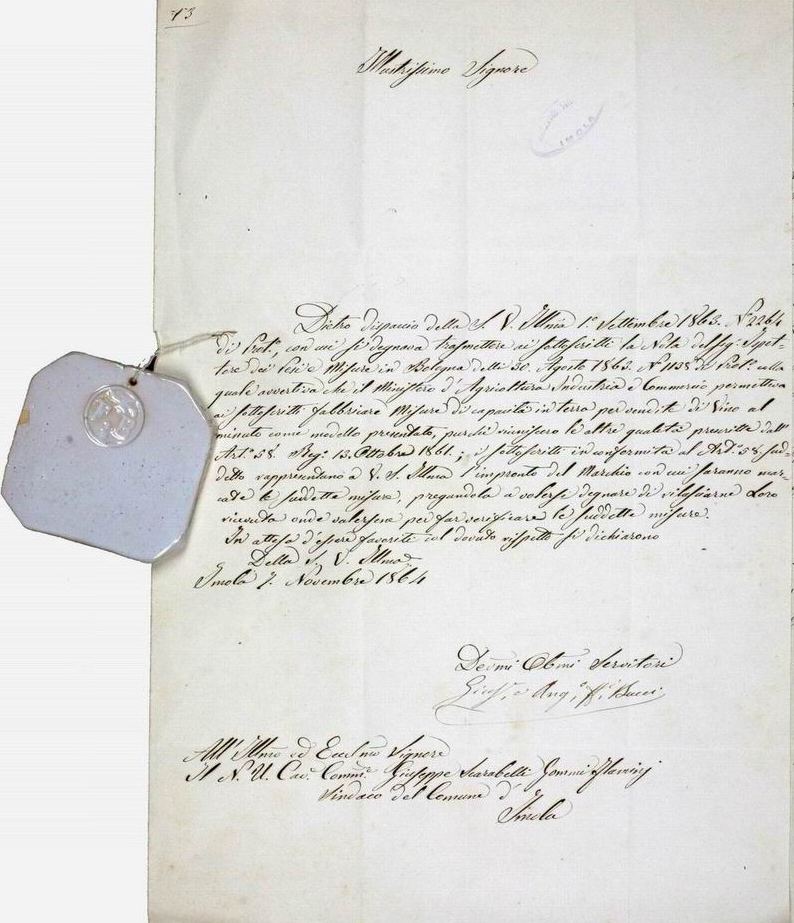 13
Illustrissimo Signore
IMOLA
Dietro dispaccio della S. V. Illma 1.º Settembre 1863. Nº 2264
di Prot., con cui si degnava trasmettere ai sottoscritti la Nota del Sig. Ispet-
tore dei Pesi e Misure in Bologna delli 30. Agosto 1863. Nº 1138 di Prot. colla
quale avvertiva che il Ministero d'Agricoltura Industria e Commercio permetteva
ai sottoscritti fabbricare Misure di capacità in terra per vendite di Vino al
minuto come modello presentato, purché riunissero le altre qualità prescritte dall'
Artº 58. Reg.º 13. Ottobre 1861.; i sottoscritti in conformità al Artº 58. sud-
detto rappresentano a V. S. Illma l'impronto del Marchio con cui saranno mar-
cate le suddette misure, pregandola a volersi degnare di rilasciarne Loro
ricevuta onde valersene per far verificare le suddette misure.
In attesa d'essere favoriti col dovuto rispetto si dichiarono
Della S. V. Illma
Imola 7. Novembre 1864
Devmi Obmi Servitori
Gius.e e Ang.o Fli Bucci
All' Illmo ed Eccelmo Signore
Il N. U. Cav.e Comm.e Giuseppe Scarabelli Gommi Flaminj
Sindaco del Comune d'
Imola